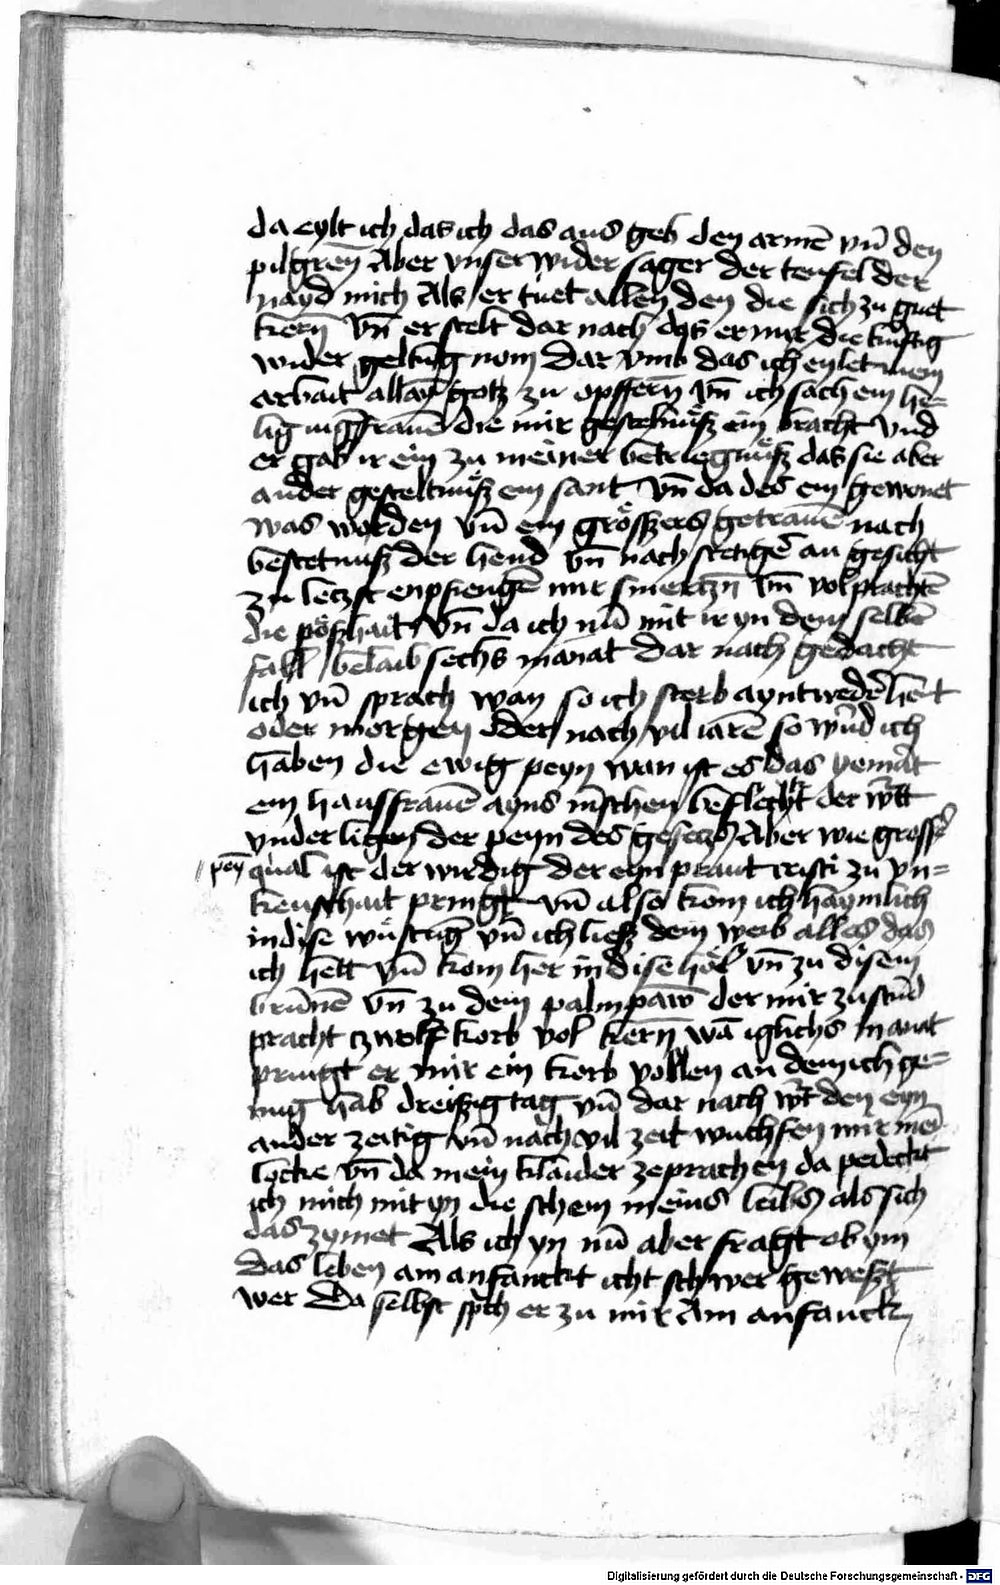 da eylt ich das ich das aus geb den armē vn̄ den
pilgreȳ Aber vnser wider sager der teufel der
nayd mich Als er tuet allen den die sich zu guet
kern̄ Vn̄ er stelt dar nach das er mir die kunftig
wider geltūg nom Dar vmb das ich eylet mein
arbait allain gotz zu opffern̄ Vn̄ ich sach ein he=
lig iūgfrauē die mir gestaltnuß ein bracht Vnd
er gab ir ein zu meiner betriegnuß das sie aber
ander gestaltnuß ein sant Vn̄ da des ein gewonet
was worden vn̄ ein größzers getrauē nach
bestetnuß der hend Vn̄ nach stetigē an gesicht
zu letzst enpfiengē mir smertzn̄ Vn̄ volprachtē
die poßhait Vn̄ da ich nū mit ir yn dem selbē
fall belaib sechs manat dar nach gedacht
ich vn̄ sprach wan so ich sterb ayntwedē heut
oder morgen oder nach vil iarē so wūrd ich
haben die ewig peyn wan ist es das yemāt
ein hausfrauē ayns mēschen befleckt der wirt
vnder ligen der peyn des gesecz Aber wie grosse
// pey qual ist der wirdig der eyn praut cristi zu vn=
keuschait pringt vn̄ also kom ich haymlich
in dise wüstūg vn̄ ich ließ dem weib alles das
ich hett Vn̄ kom her in dise höl Vn̄ zu disem
brūnē Vn̄ zu dem palmpaw der mir zustūd
pracht czwelf korb vol kern̄ wā iglichs manat
pringt er mir ein korb vollen an dem ich ge=
nug hab dreißzig tag vn̄ dar nach wirt den eyn
ander zeitig vn̄ nach vil zeit wuchsen mir mei
locke Vn̄ da mein klaider zeprachen da pedeckt
ich mich mit yn die schem meins leibs als sich
das zymet Als ich yn nū aber fragt ob ym
das leben am anfanckt icht schwer geweszt
wer Da selbst spch er zu mir Am anfanck
Digitalisierung gefördert durch die Deutsche Forschungsgemeinschaft - DFG